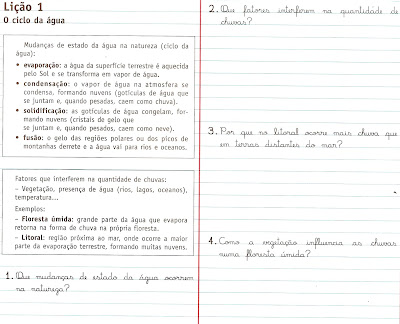 Lição 1
O ciclo da água
Mudanças de estado da água na natureza (ciclo da
água):
• evaporação: a água da superfície terrestre é aquecida
pelo Sol e se transforma em vapor de água.
• condensação: o vapor de água na atmosfera se
condensa, formando nuvens (gotículas de água que
se juntam e, quando pesadas, caem como chuva).
• solidificação: as gotículas de água congelam, for-
mando nuvens (cristais de gelo que
se juntam e, quando pesadas, caem como neve).
• fusão: o gelo das regiões polares ou dos picos de
montanhas derrete e a água vai para rios e oceanos.
Fatores que interferem na quantidade de chuvas:
– Vegetação, presença de água (rios, lagos, oceanos),
temperatura...
Exemplos:
– Floresta úmida: grande parte da água que evapora
retorna na forma de chuva na própria floresta.
– Litoral: região próxima ao mar, onde ocorre a maior
parte da evaporação terrestre, formando muitas nuvens.
1. Que mudanças de estado da água ocorrem
na natureza?
2. Que fatores interferem na quantidade de
chuvas?
3. Por que no litoral ocorre mais chuva que
em terras distantes do mar?
4. Como a vegetação influencia as chuvas
numa floresta úmida?